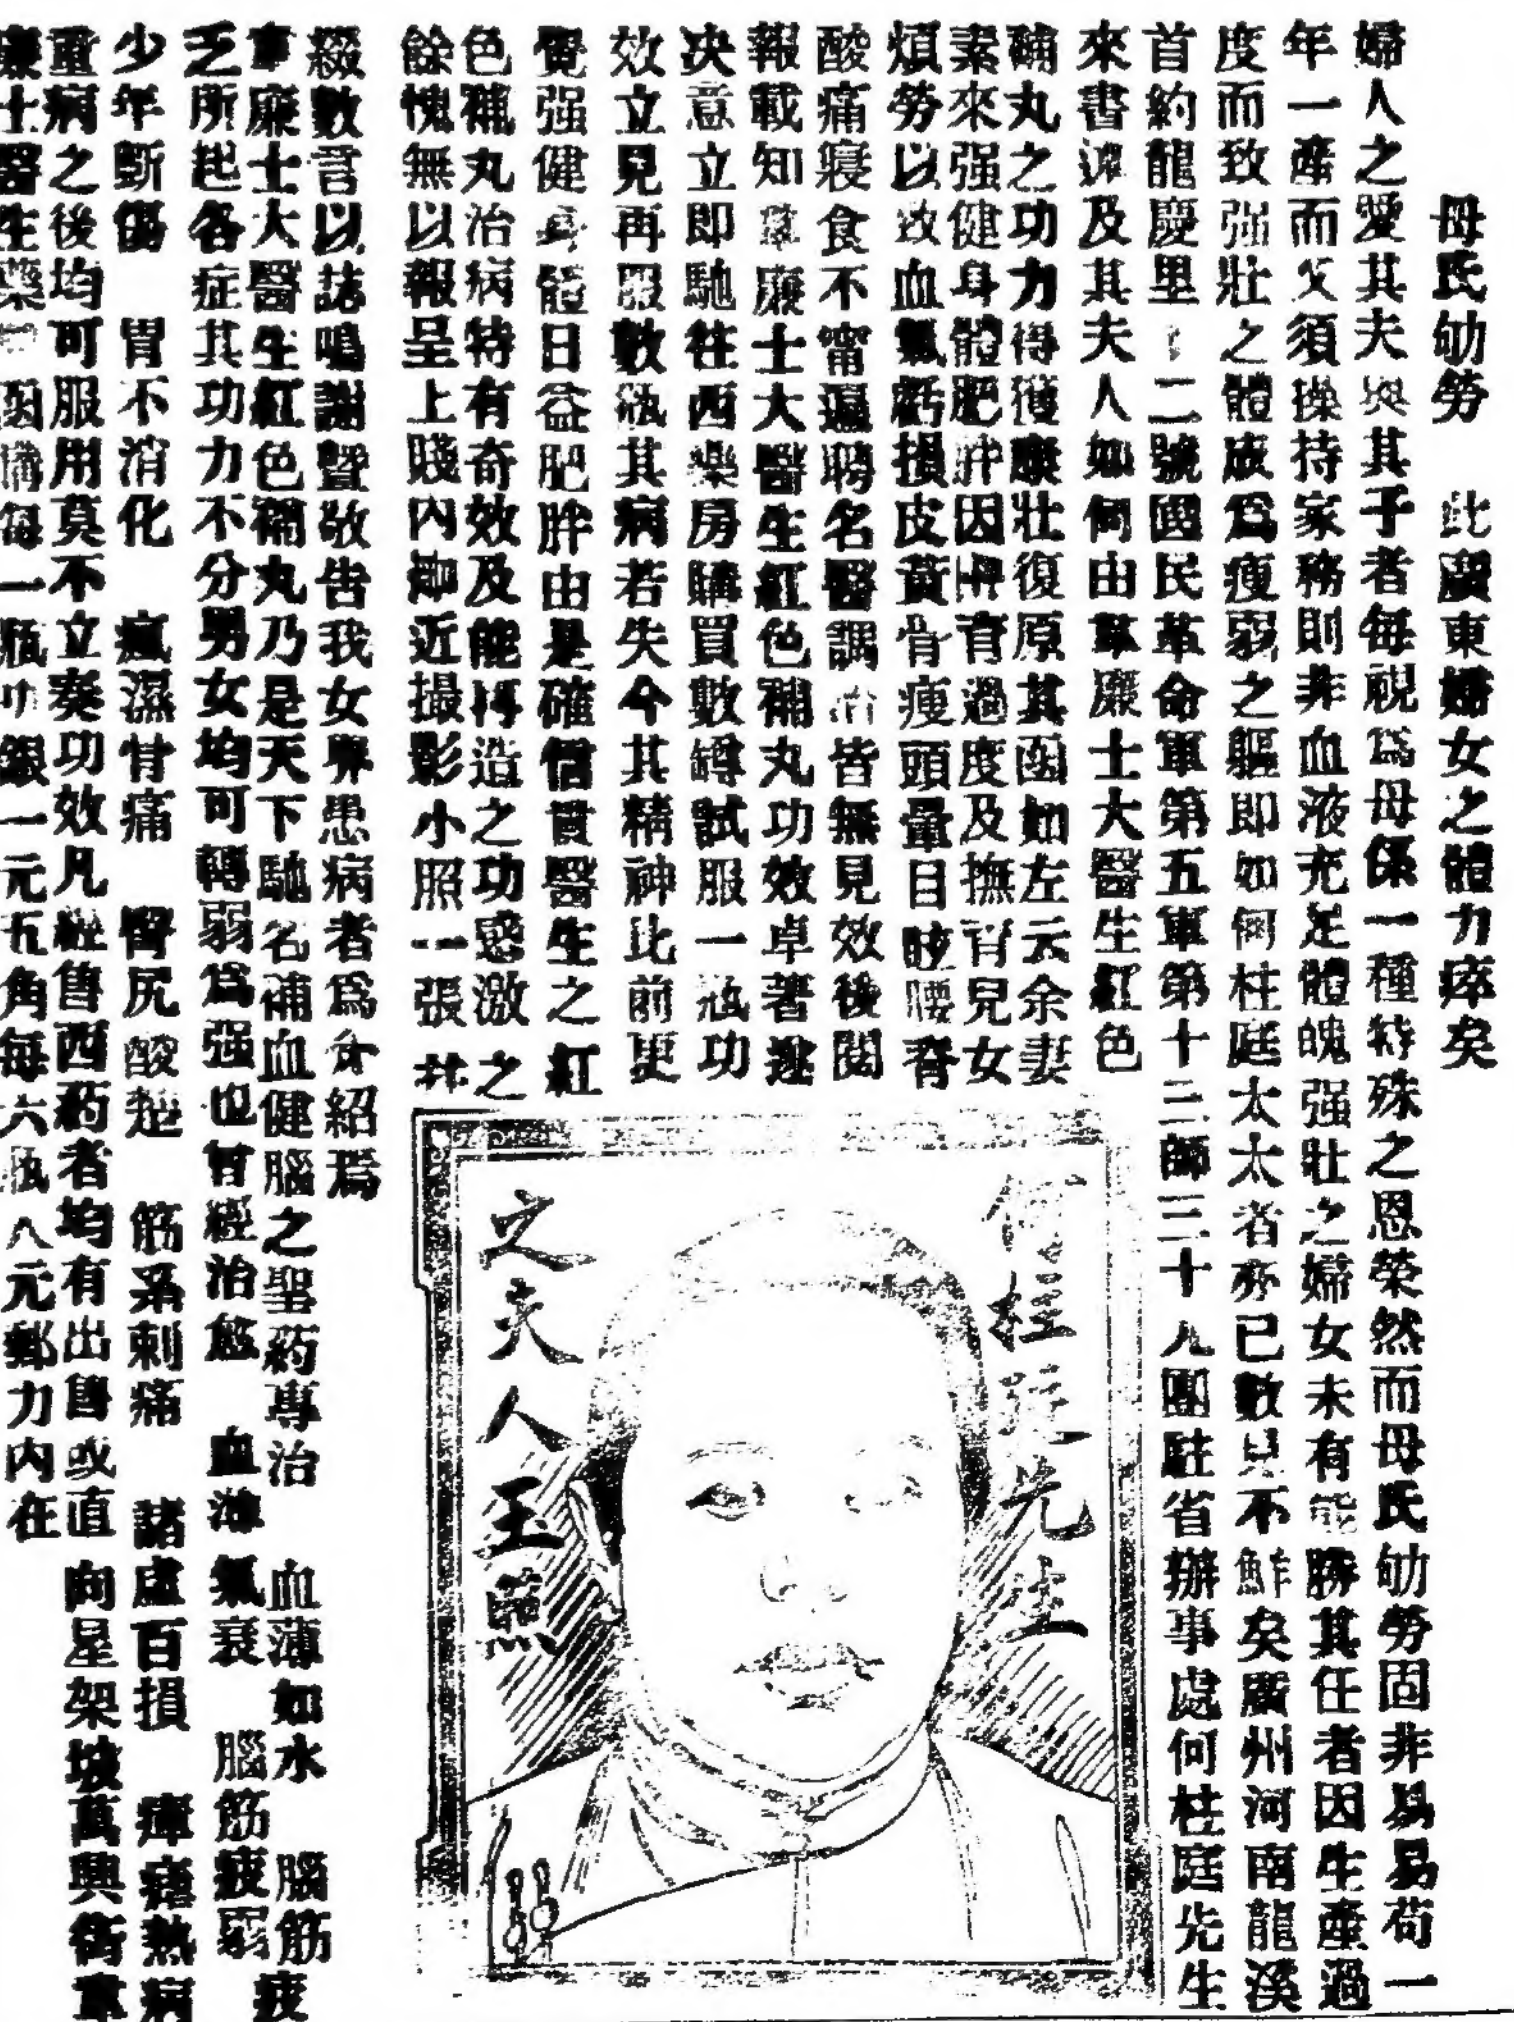 母氏劬勞 此廣東婦女之體力瘁矣
婦人之愛其夫與其子者每視爲母係一種特殊之恩榮然而母氏劬勞固非易易苟一
年一產而父須操持家務則非血液充足體魄强壯之婦女未有能勝其任者因生產過
度而致强壯之體成爲瘦弱之軀即如何柱庭太太者亦已數見不鮮矣廣州河南龍溪
首約龍慶里二號國民革命軍第五軍第十三師三十八團駐省辦事處何柱庭先生
來書述及其夫人如何由韋廉士大醫生紅色
補丸之功力得獲康壯復原其函如左云余妻
素來强健身體肥胖因生育過度及撫育兒女
煩勞以致血氣虧損皮黃骨瘦頭暈目眩腰脊
酸痛寢食不甯遍聘名醫調治皆無見效後閱
報載知韋廉士大醫生紅色補丸功效卓著遂
决意立即馳往西藥房購買數罇試服一瓶功
效立見再服數瓶其病若失今其精神比前更
覺强健身體日益肥胖由是確信貴醫生之紅
色補丸治病特有奇效及能再造之功感激之
餘愧無以報呈上賤內鄉近撮影小照一張并
綴數言以誌鳴謝暨敬告我女界患病者爲介紹焉
韋廉士大醫生紅色補丸乃是天下馳名補血健腦之聖葯專治 血薄如水 腦筋疲
乏所起各症其功力不分男女均可轉弱爲强也曾經治愈 血薄氣衰 腦筋疲弱
少年斲傷 胃不消化 瘋濕骨痛 臀尻酸楚 筋系刺痛 諸虛百損 瘴瘧熱病
重病之後均可服用莫不立奏功效凡經售西葯者均有出售或直向星架坡萬興街韋
廉士醫生藥局函購每一瓶叻銀一元五角每六瓶八元郵力內在
何柱庭先生
之夫人玉照